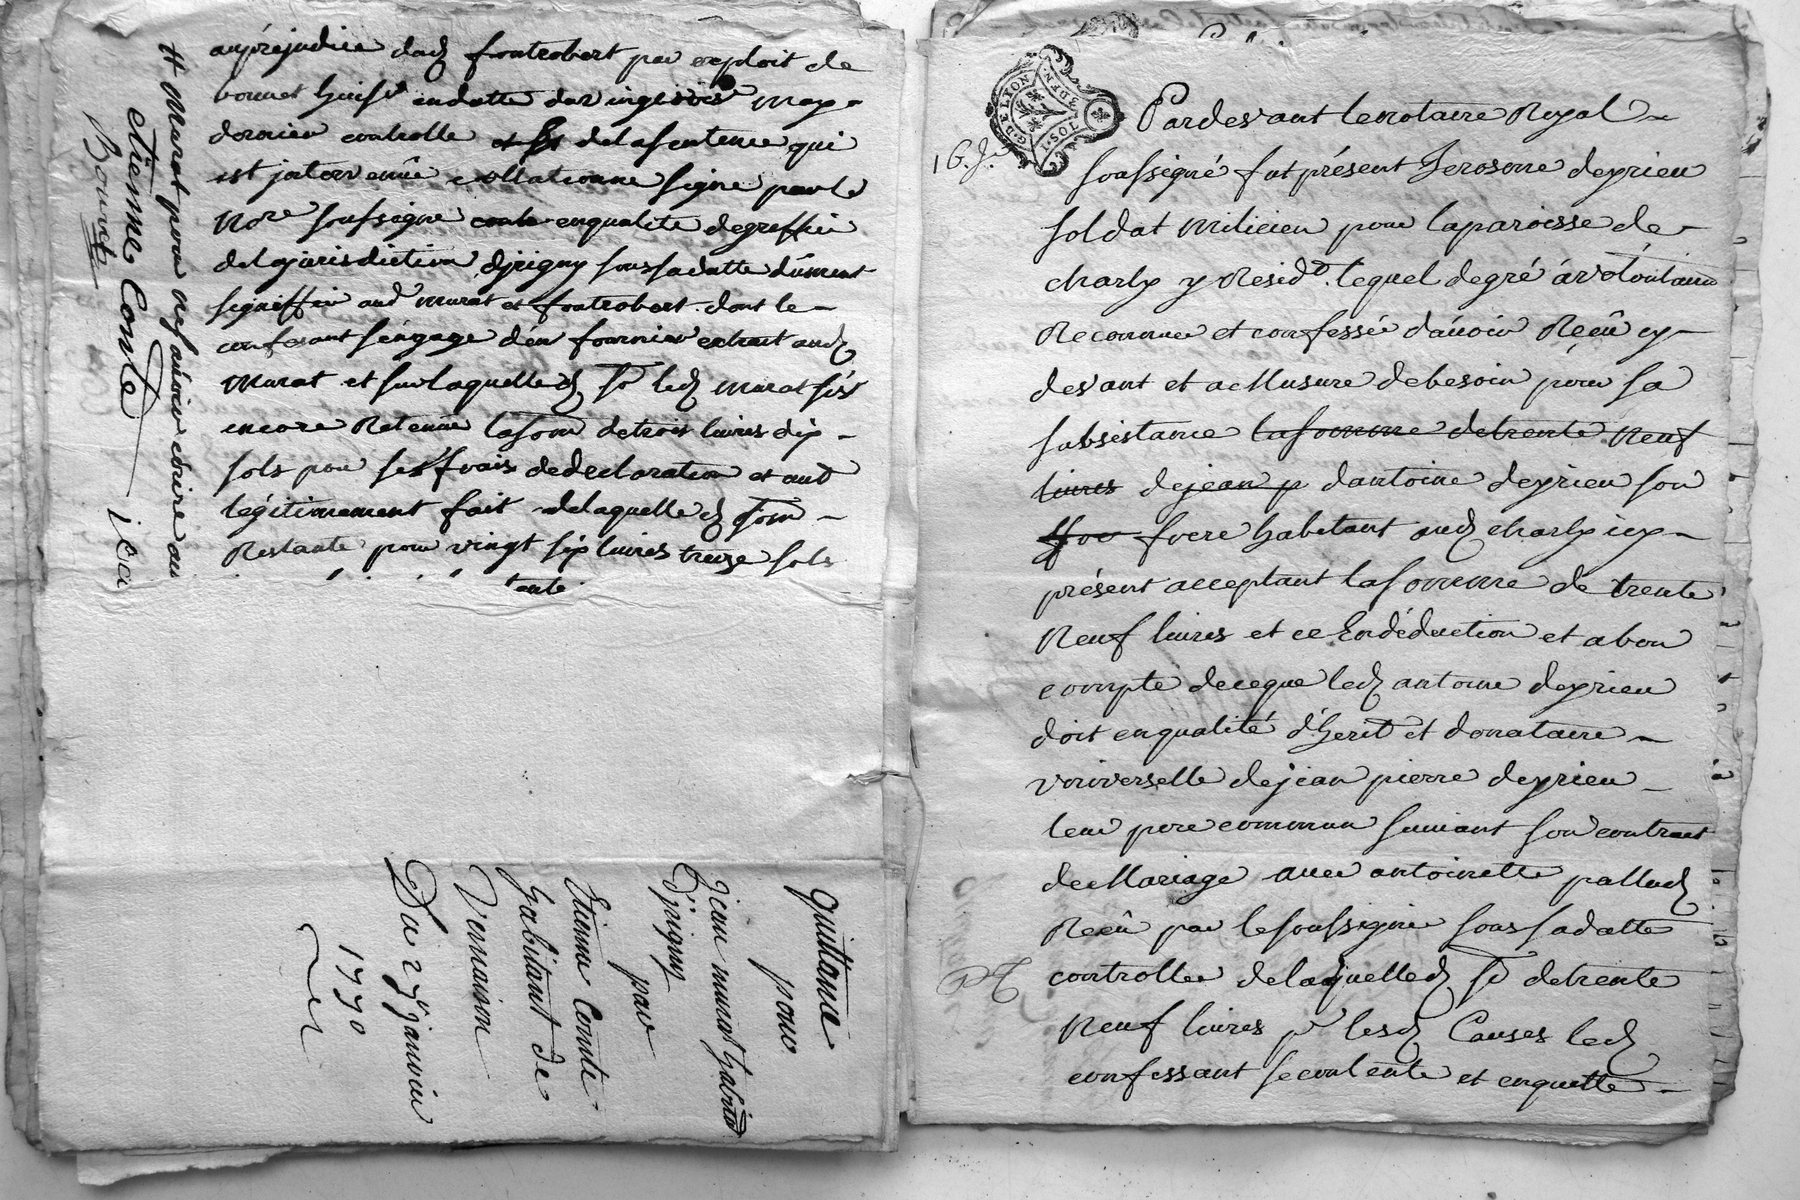 au préjudice dud fontrobert par exploit de
bonnet huissr en datte du vingt six may
dernier controllé et de la sentence qui
est intervenüe collationné signé par le
Nore soussigné en qualité de greffier
de la jurisdiction d'irigny sous sa datte düment
signiffiée aud murat et fontrobert dont le
confessant s'engage d'en fournir extrait aud
murat et sur laquelle d. So led murat s'est
encore Retenüe la som de trois livres dix
sols pour ses frais de declaration et aud
légitimement fait de laquelle d. som
Restante pour vingt six livres treize sols
tente
# Murat pour
etienne Conte
Bouvete
quittance
pour
Jean murat habitt
D'irigny
par
Etienne Comte
habitant de
Vernaison
Du 27 janvier
1770
G. DE LYON
1. SOL
Pardevant le notaire Royal
16. J.
soussigné fut présent Jerosme deyrieu
soldat milicien pour la paroisse de
charly y Residt lequel de gré à volontaire
Reconnu et confessé d'avoir Reçû cy
devant et a Mesure de besoin pour sa
subsistance la somme de trente neuf
livres de jean p d'antoine deyrieu son
frere habitant aud charly icy
présent acceptant la somme de trente
Neuf livres et ce En déduction et a bon
compte de ce que led antoine deyrieu
doit en qualité d'herit et donataire
Vniverselle de jean pierre deyrieu
leur pere commun suivant son contract
de Mariage avec antoinette pallud
Reçû par le soussigné sous sa datte
controllée de laquelle d. So de trente
Neuf livres pr lesd Causes led
confessant se contente et en quitte